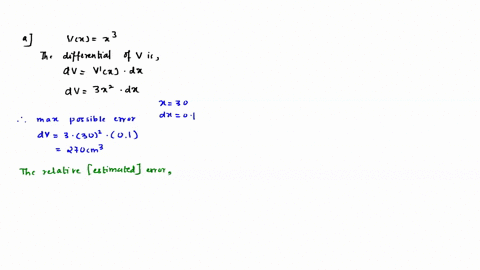 a] V(x) = x³
The differential of V is,
dV = V'(x) · dx
dV = 3x² · dx
x = 30
dx = 0.1
∴ max possible error
dV = 3 · (30)² · (0.1)
= 270 cm³
The relative [estimated] error,